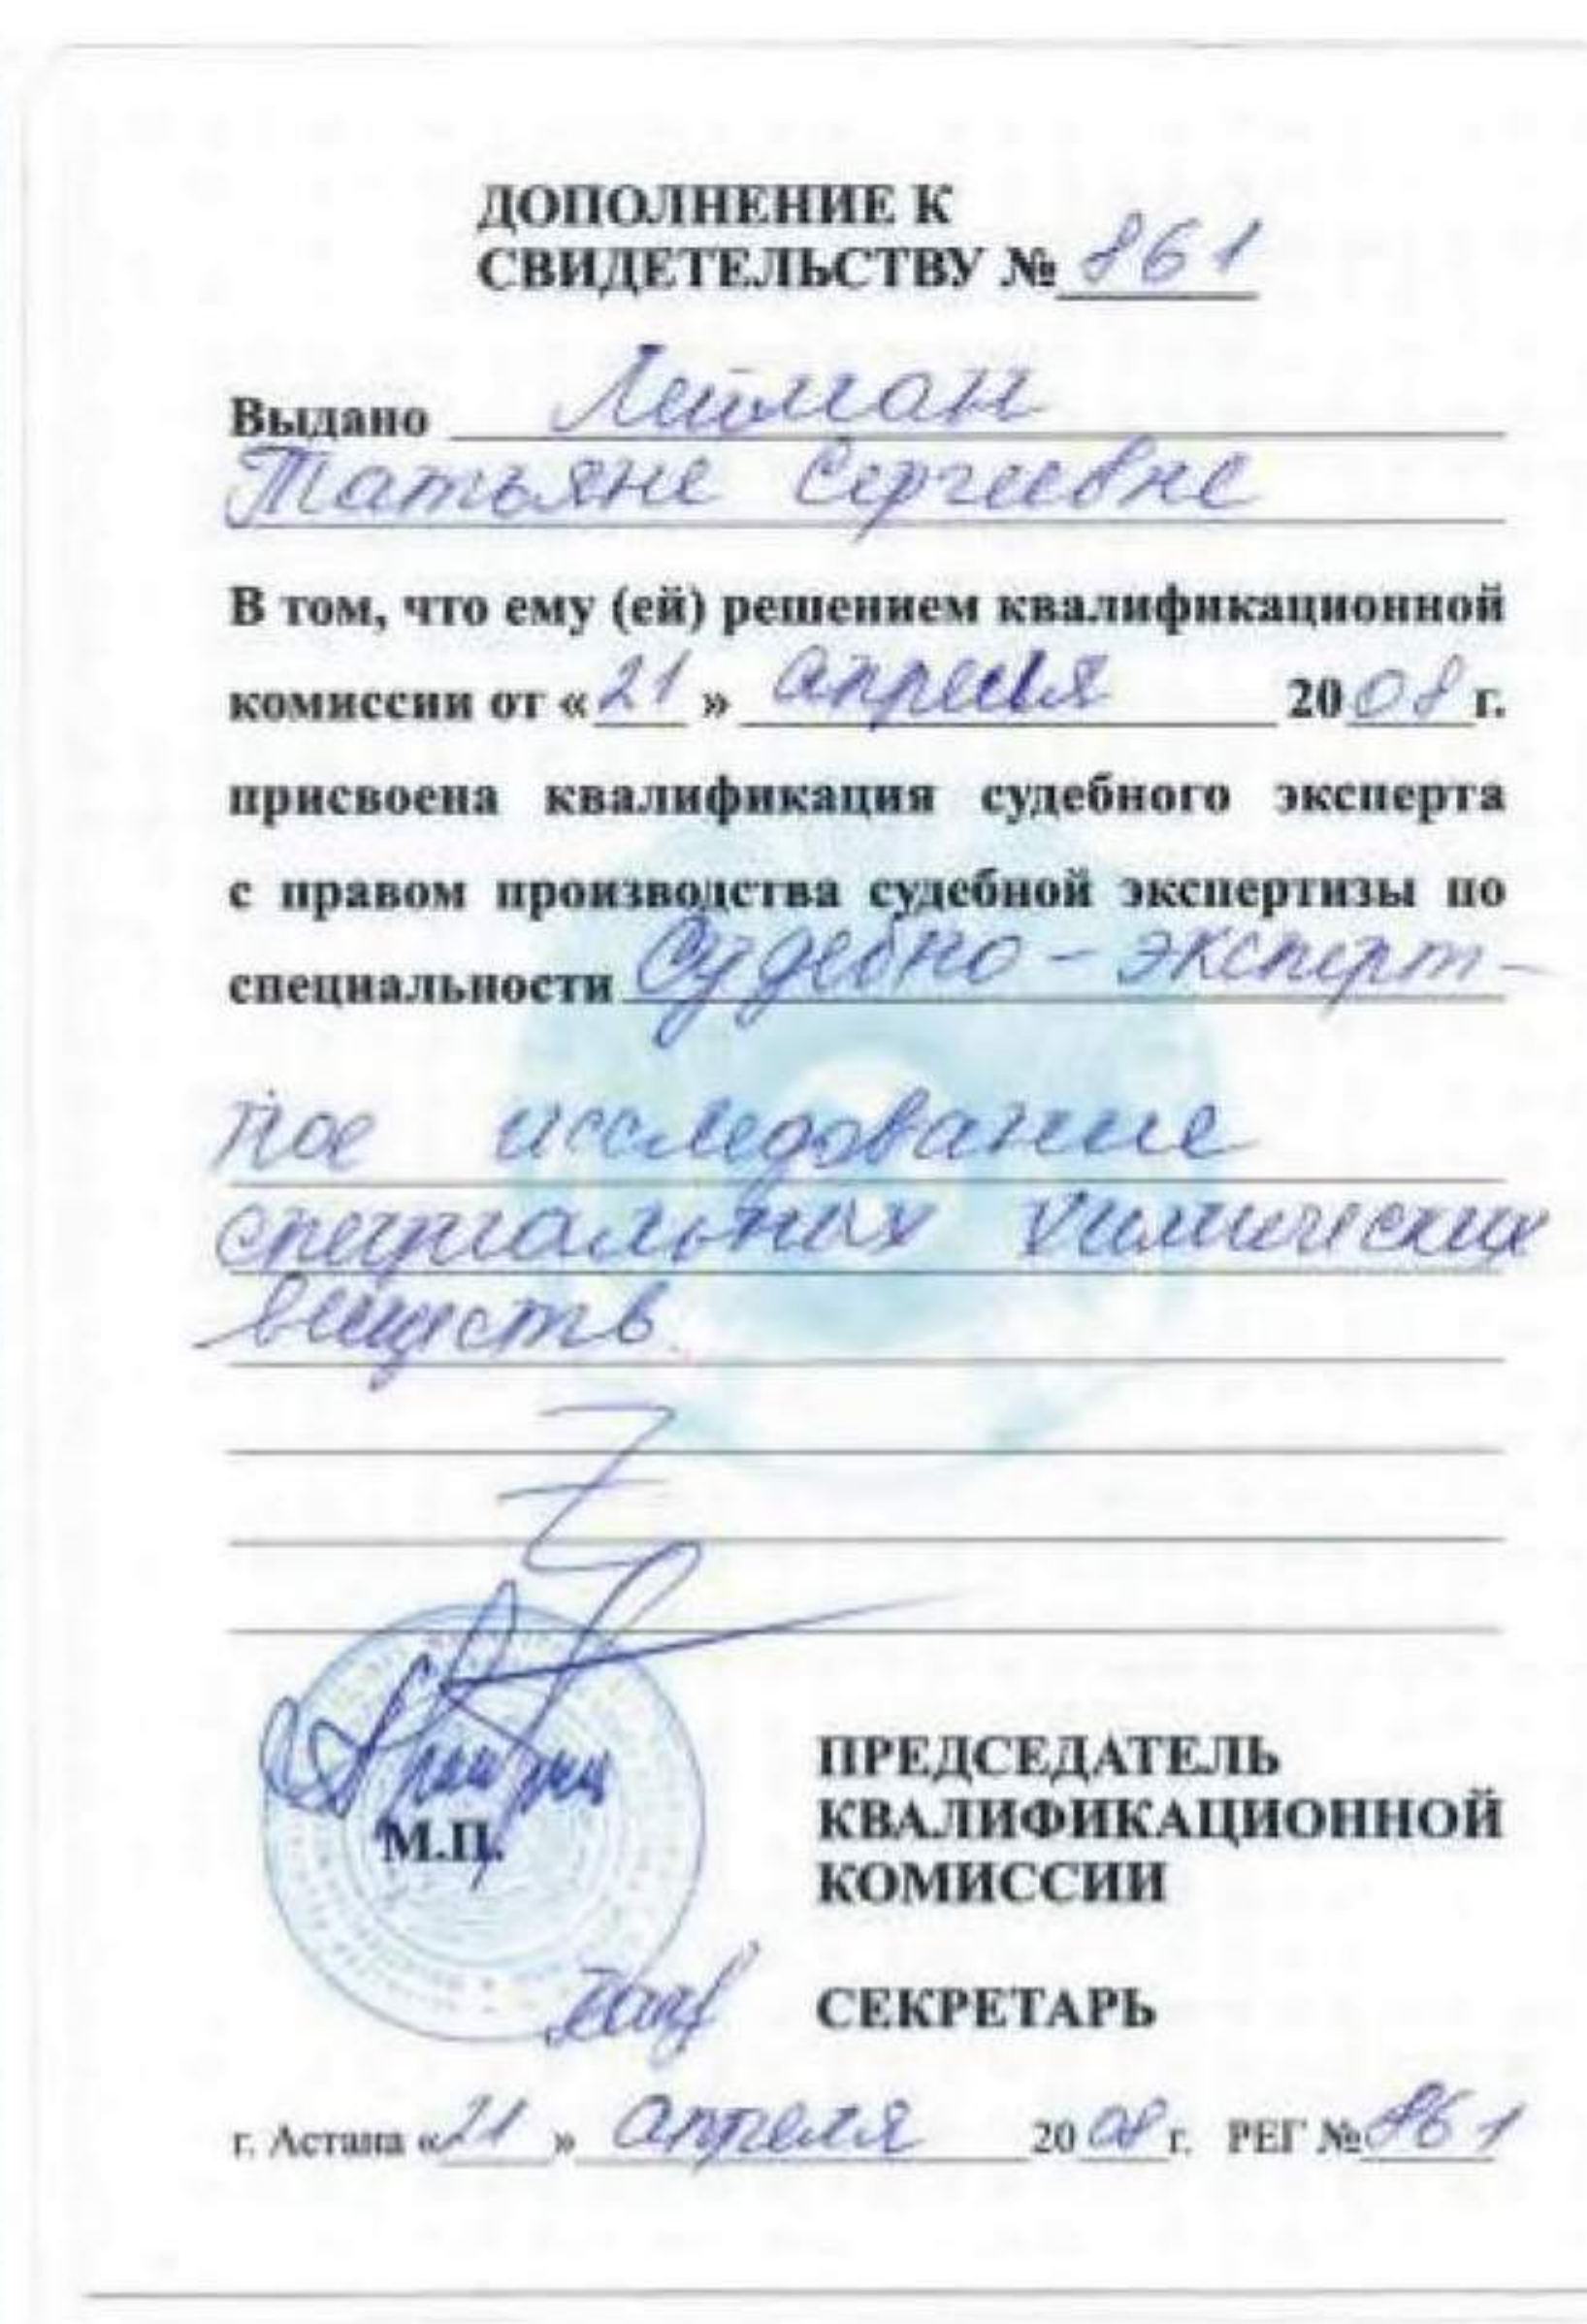 ДОПОЛНЕНИЕ К
СВИДЕТЕЛЬСТВУ № 861
Выдано Лейман
Татьяне Сергеевне
В том, что ему (ей) решением квалификационной
комиссии от «21» апреля 2008 г.
присвоена квалификация судебного эксперта
с правом производства судебной экспертизы по
специальности Судебно-эксперт-
ное исследование
специальных химических
веществ.
М.П.
ПРЕДСЕДАТЕЛЬ
КВАЛИФИКАЦИОННОЙ
КОМИССИИ
СЕКРЕТАРЬ
г. Астана «21» апреля 2008 г. РЕГ № 861